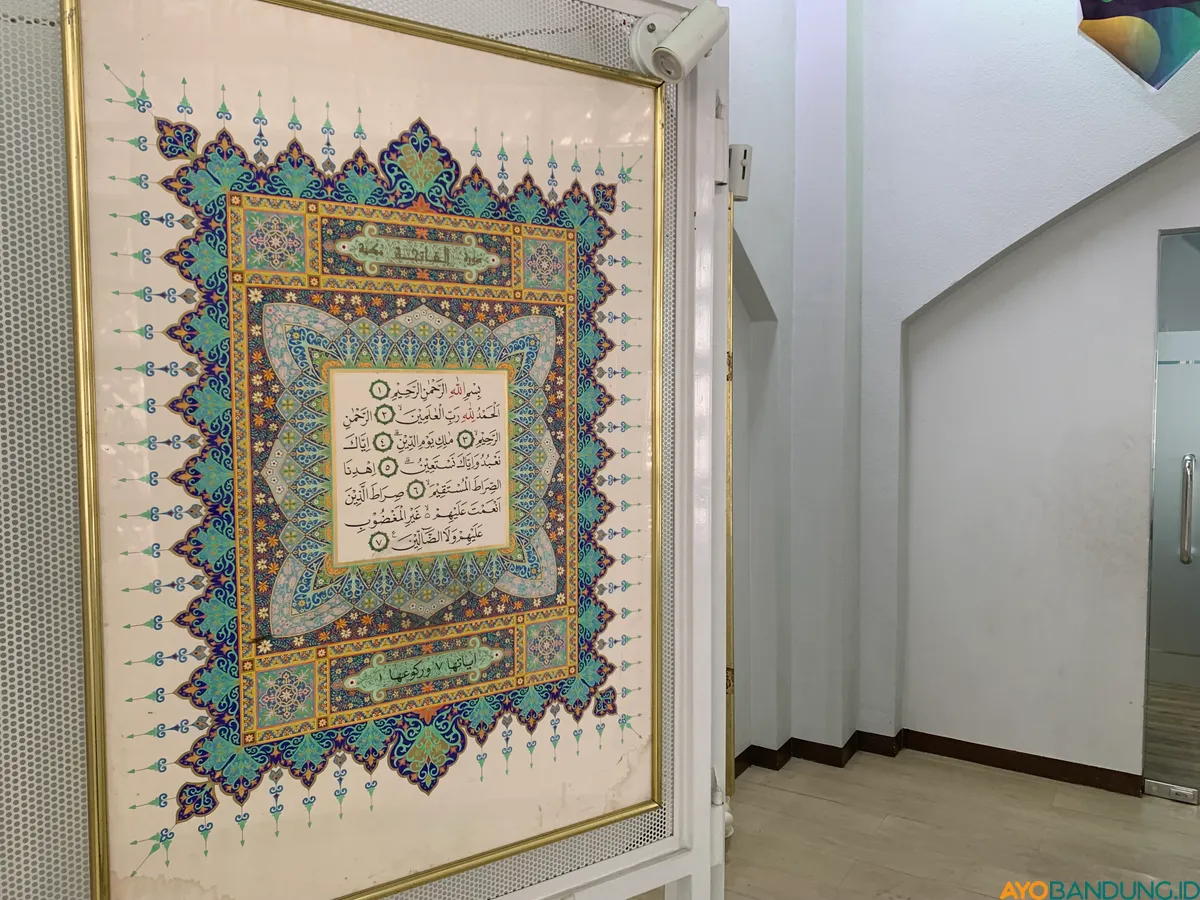 سورة الفاتحة مكية
بِسْمِ اللهِ الرَّحْمٰنِ الرَّحِيْمِ ١
اَلْحَمْدُ لِلّٰهِ رَبِّ الْعٰلَمِيْنَ ۙ ٢ الرَّحْمٰنِ
الرَّحِيْمِ ۙ ٣ مٰلِكِ يَوْمِ الدِّيْنِ ۗ ٤ اِيَّاكَ
نَعْبُدُ وَاِيَّاكَ نَسْتَعِيْنُ ۗ ٥ اِهْدِنَا
الصِّرَاطَ الْمُسْتَقِيْمَ ۙ ٦ صِرَاطَ الَّذِيْنَ
اَنْعَمْتَ عَلَيْهِمْ ە ۙ غَيْرِ الْمَغْضُوْبِ
عَلَيْهِمْ وَلَا الضَّآلِّيْنَ ࣖ ٧
اياتها ٧ وركوعها ١
AYOBANDUNG.ID